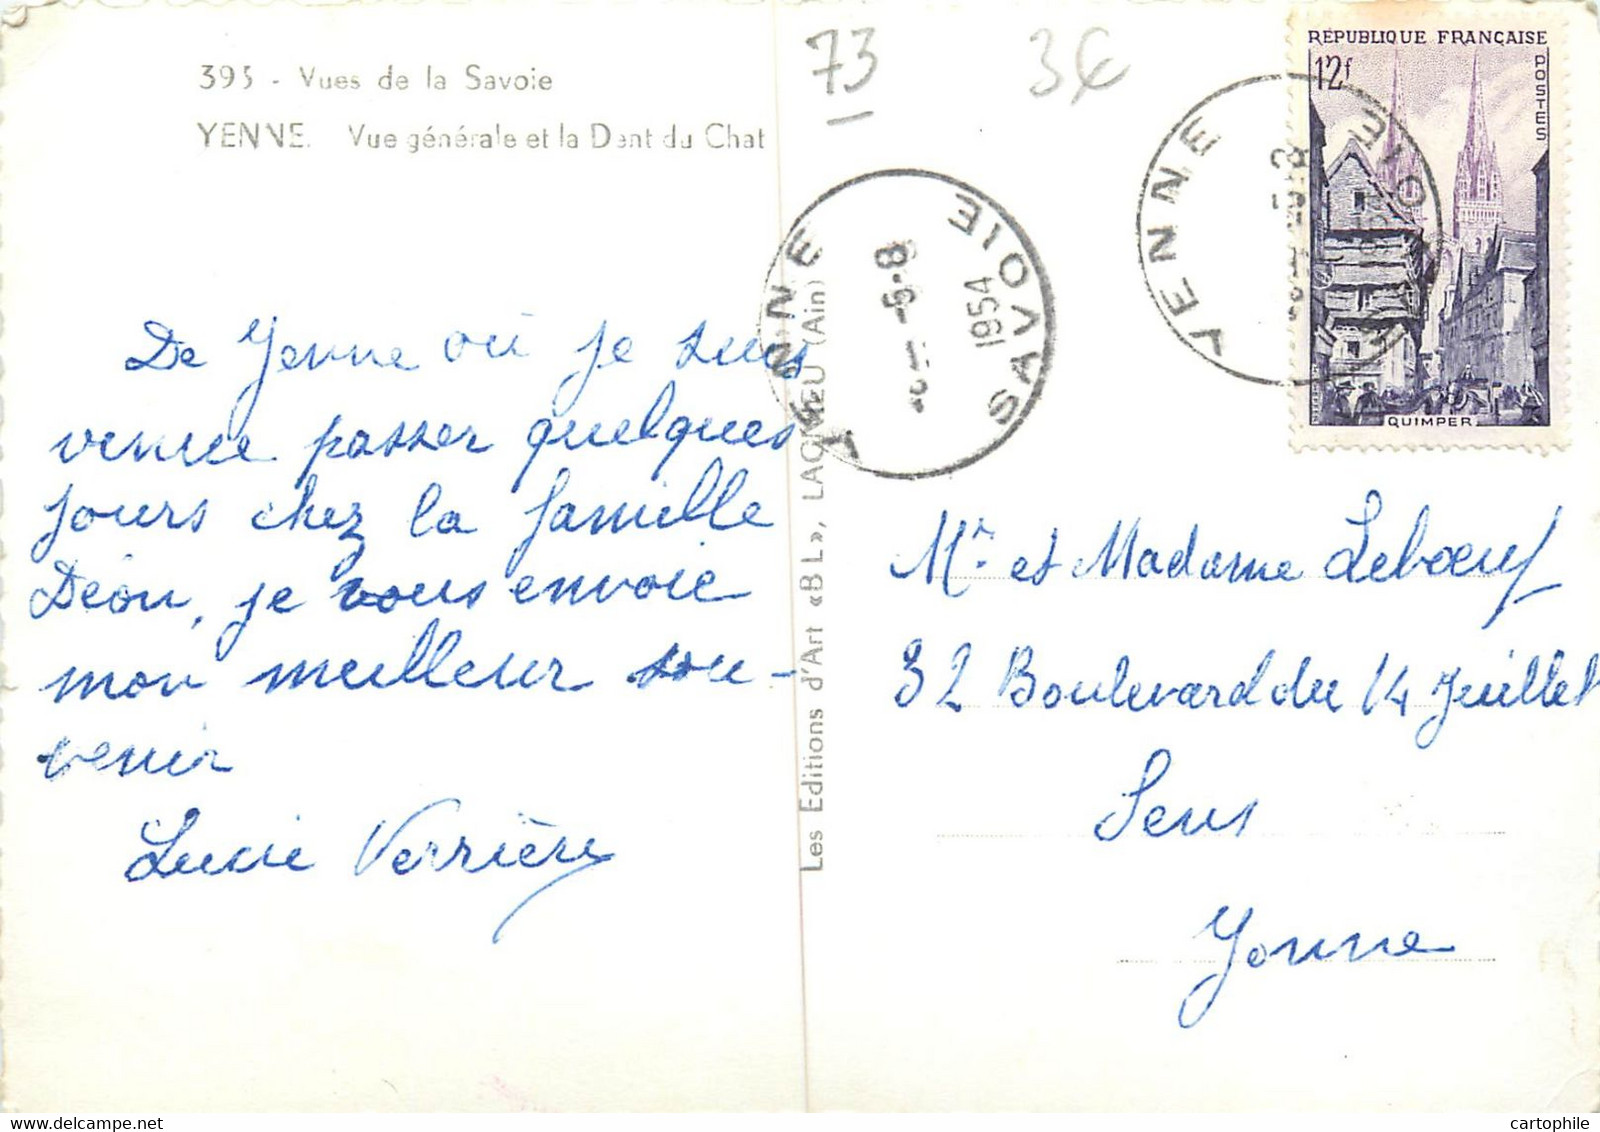 395 - Vues de la Savoie
YENNE. Vue générale et la Dent du Chat
73
3€
De Yenne où je suis
venue passer quelques
jours chez la famille
Déon, je vous envoie
mon meilleur sou-
venir
Lucie Verrière
Les Editions d'Art «BL», LAGNIEU (Ain)
YENNE
1954
SAVOIE
YENNE
RÉPUBLIQUE FRANÇAISE
12f
POSTES
QUIMPER
Mr. et Madame Leboeuf
32 Boulevard du 14 Juillet
Sens
Yonne
cartophile